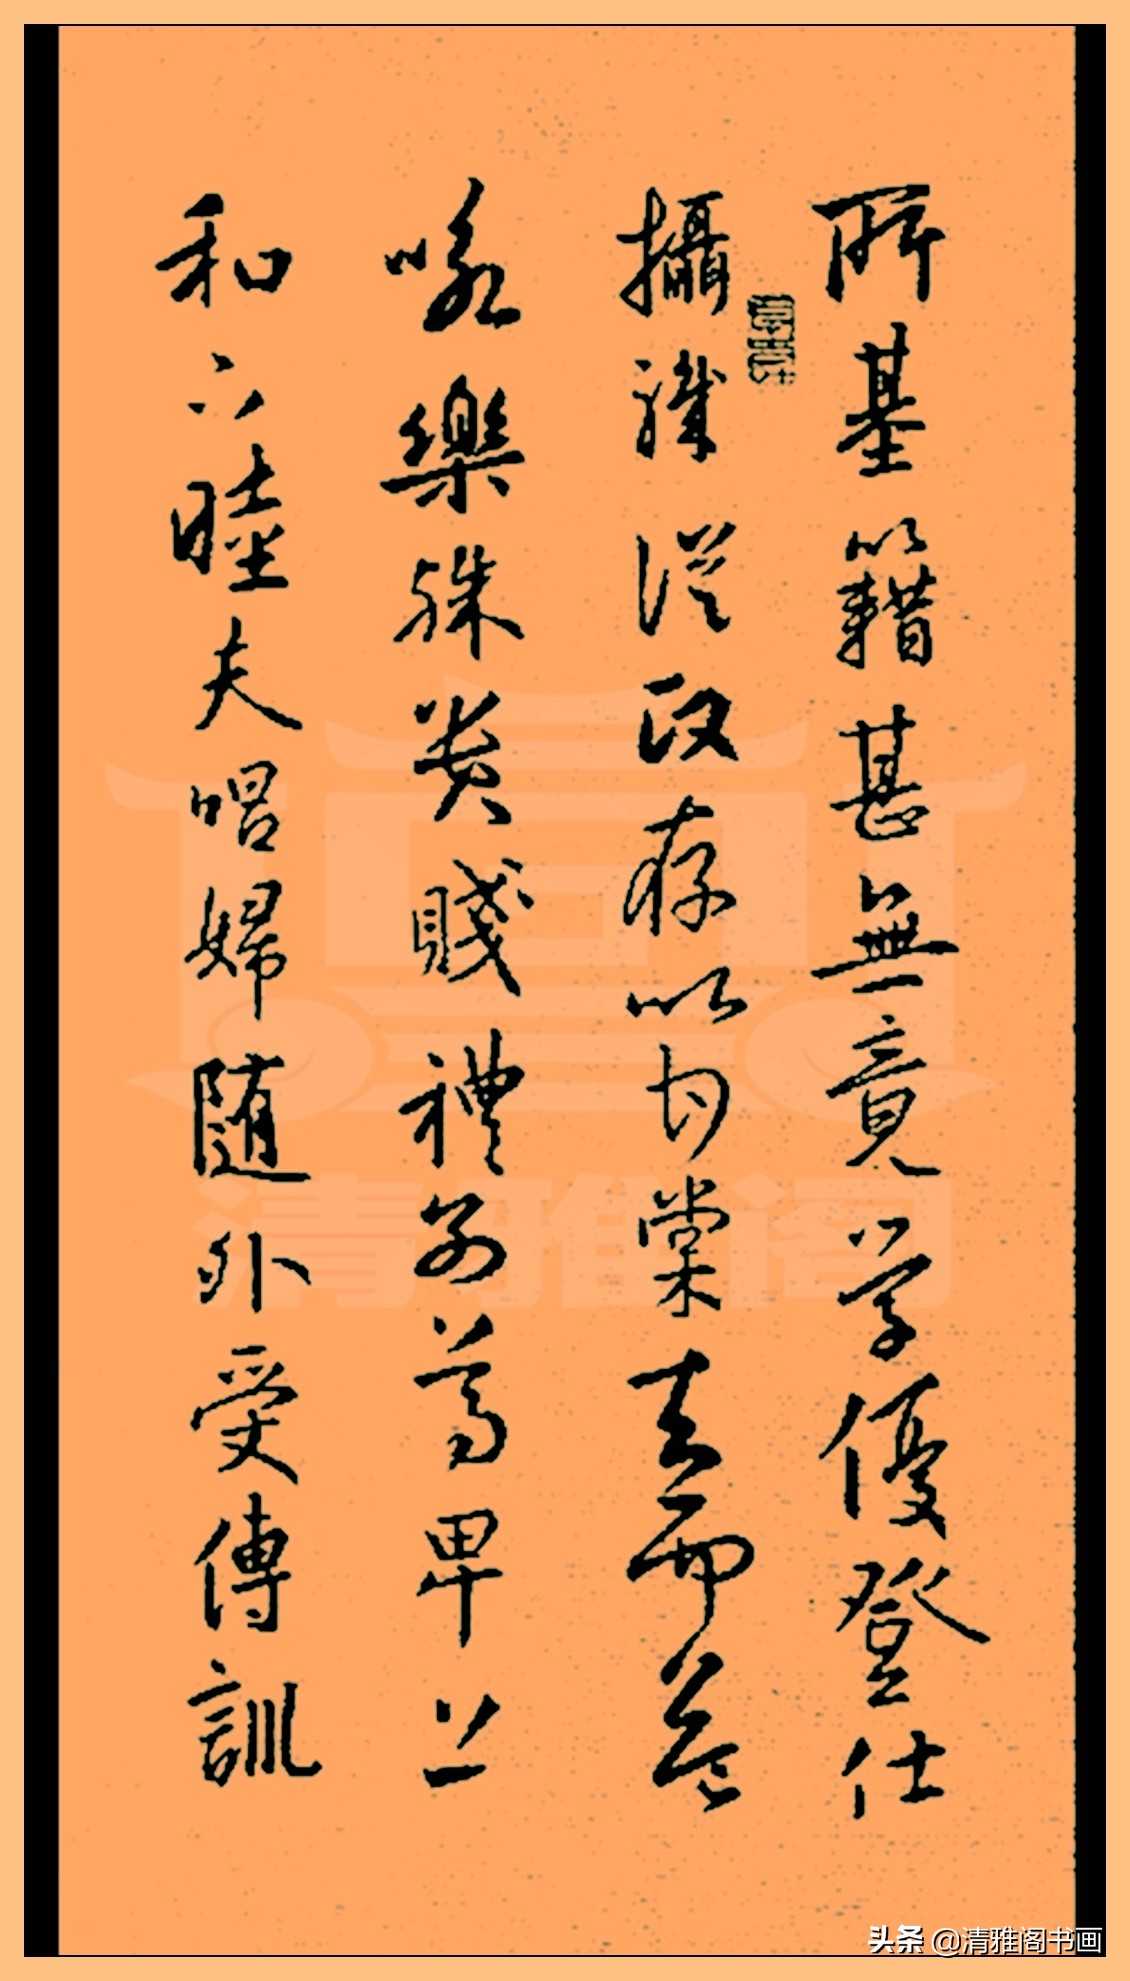 所基籍甚無竟学優登仕
攝職從政存以甘棠去而益
咏樂殊贵賤禮別尊卑上
和下睦夫唱婦随外受傳訓
清雅阁
头条 @清雅阁书画